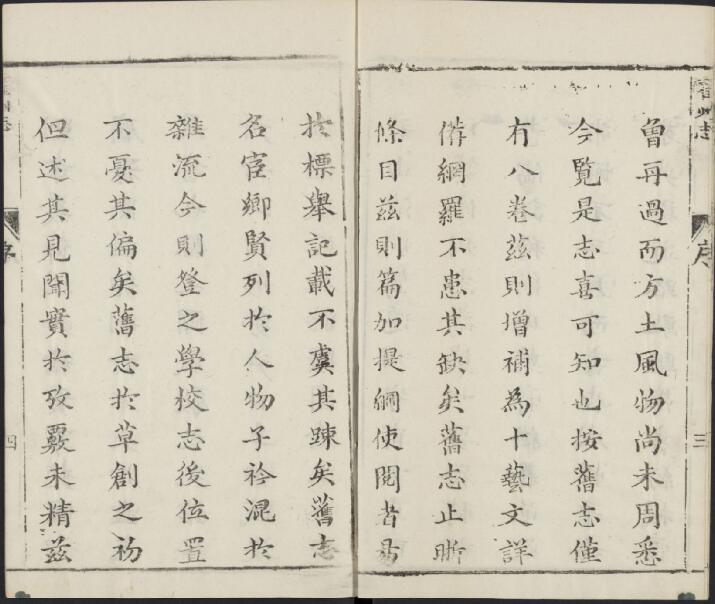 曾再過而方土風物尚未周悉
今覽是志喜可知也按舊志僅
有八卷茲則增補為十藝文詳
備網羅不患其缺矣舊志止晰
條目茲則篇加提綱使閱者易
於標舉記載不虞其踈矣舊志
名宦鄉賢列於人物子衿混於
雜流今則登之學校志後位置
不憂其偏矣舊志於草創之初
但述其見聞實於攷覈未精茲
州志
序
三
四